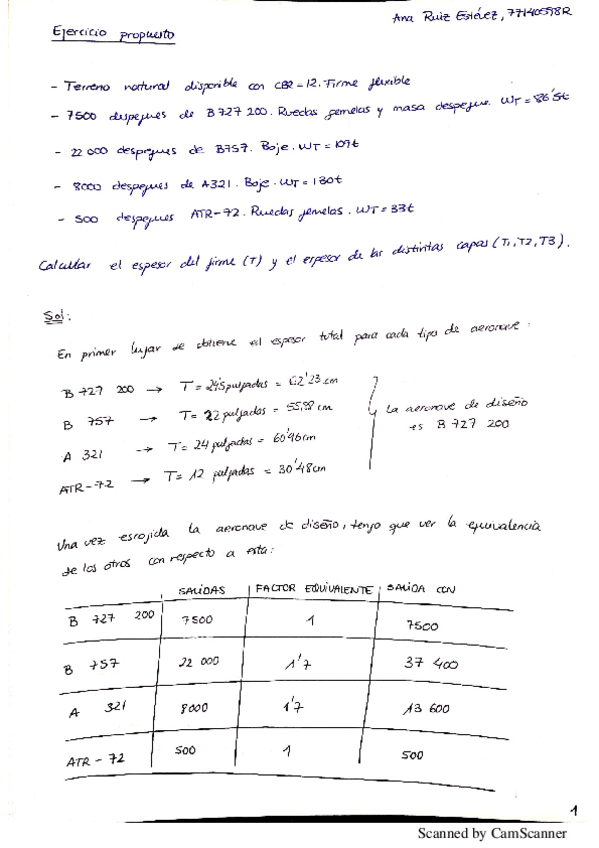 Ana Ruiz Estévez, 77140598R
Ejercicio propuesto
- Terreno natural disponible con CBR=12. Firme flexible
- 7500 despegues de B727 200. Ruedas gemelas y masa despegue. WT=86'5t
- 22 000 despegues de B757. Boje. WT=109t
- 8000 despegues de A321. Boje. WT=130t
- 500 despegues ATR-72. Ruedas gemelas. WT=33t
Calcular el espesor del firme (T) y el espesor de las distintas capas (T1, T2, T3).
Sol:
En primer lugar se obtiene el espesor total para cada tipo de aeronave:
B 727 200 → T= 24'5 pulgadas = 62'23 cm
B 757 → T= 22 pulgadas = 55,88 cm
A 321 → T= 24 pulgadas = 60'96cm
ATR-72 → T= 12 pulgadas = 30'48cm
La aeronave de diseño
es B 727 200
Una vez escojida la aeronave de diseño, tengo que ver la equivalencia
de los otros con respecto a esta:
SALIDAS FACTOR EQUIVALENTE SALIDA CON
B 727 200 7500 1 7500
B 757 22 000 1'7 37 400
A 321 8000 1'7 13 600
ATR-72 500 1 500
1
Scanned by CamScanner